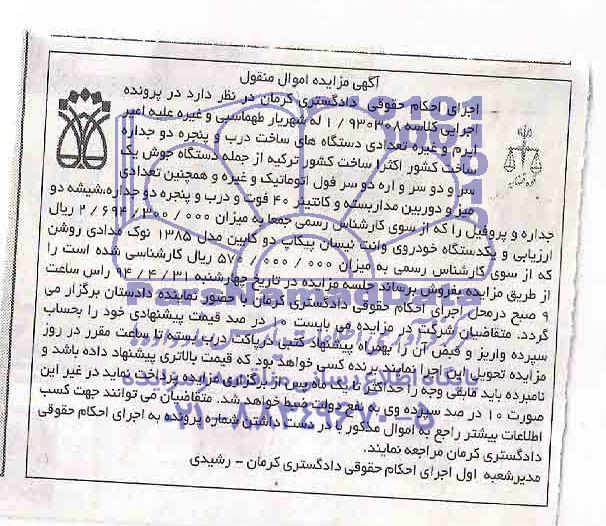 آگهی مزایده اموال منقول
اجرای احکام حقوقی دادگستری کرمان در نظر دارد در پرونده
اجرایی کلاسه ۹۳۰۳۰۸ / ۱ له شهریار طهماسبی و غیره علیه امیر
ایرم و غیره تعدادی دستگاه های ساخت درب و پنجره دو جداره
ساخت کشور اکثرا ساخت کشور ترکیه از جمله دستگاه جوش یک
سر و دو سر و اره دو سر فول اتوماتیک و غیره و همچنین تعدادی
میز و دوربین مداربسته و کانتینر ۴۰ فوت و درب و پنجره دو جداره،شیشه دو
جداره و پروفیل را که از سوی کارشناس رسمی جمعا به میزان ۰۰۰ / ۳۰۰ / ۶۹۴ / ۲ ریال
ارزیابی و یکدستگاه خودروی وانت نیسان پیکاپ دو کابین مدل ۱۳۸۵ نوک مدادی روشن
که از سوی کارشناس رسمی به میزان ۰۰۰ / ۰۰۰ / ۵۷۰ ریال کارشناسی شده است را
از طریق مزایده بفروش برساند جلسه مزایده در تاریخ چهارشنبه ۳۱ / ۴ / ۹۴ راس ساعت
۹ صبح درمحل اجرای احکام حقوقی دادگستری کرمان با حضور نماینده دادستان برگزار می
گردد. متقاضیان شرکت در مزایده می بایست ۱۰ در صد قیمت پیشنهادی خود را بحساب
سپرده واریز و قبض آن را بهمراه پیشنهاد کتبی درپاکت درب بسته تا ساعت مقرر در روز
مزایده تحویل این اجرا نمایند برنده کسی خواهد بود که قیمت بالاتری پیشنهاد داده باشد و
نامبرده باید مابقی وجه را حداکثر تا یک ماه پس از برگزاری مزایده پرداخت نماید در غیر این
صورت ۱۰ در صد سپرده وی به نفع دولت ضبط خواهد شد. متقاضیان می توانند جهت کسب
اطلاعات بیشتر راجع به اموال مذکور با در دست داشتن شماره پرونده به اجرای احکام حقوقی
دادگستری کرمان مراجعه نمایند.
مدیرشعبه اول اجرای احکام حقوقی دادگستری کرمان - رشیدی
ParsNamadData
پایگاه اطلاع رسانی مناقصه و مزایده
۰۲۱-۸۸۳۴۹۶۷۰-۵